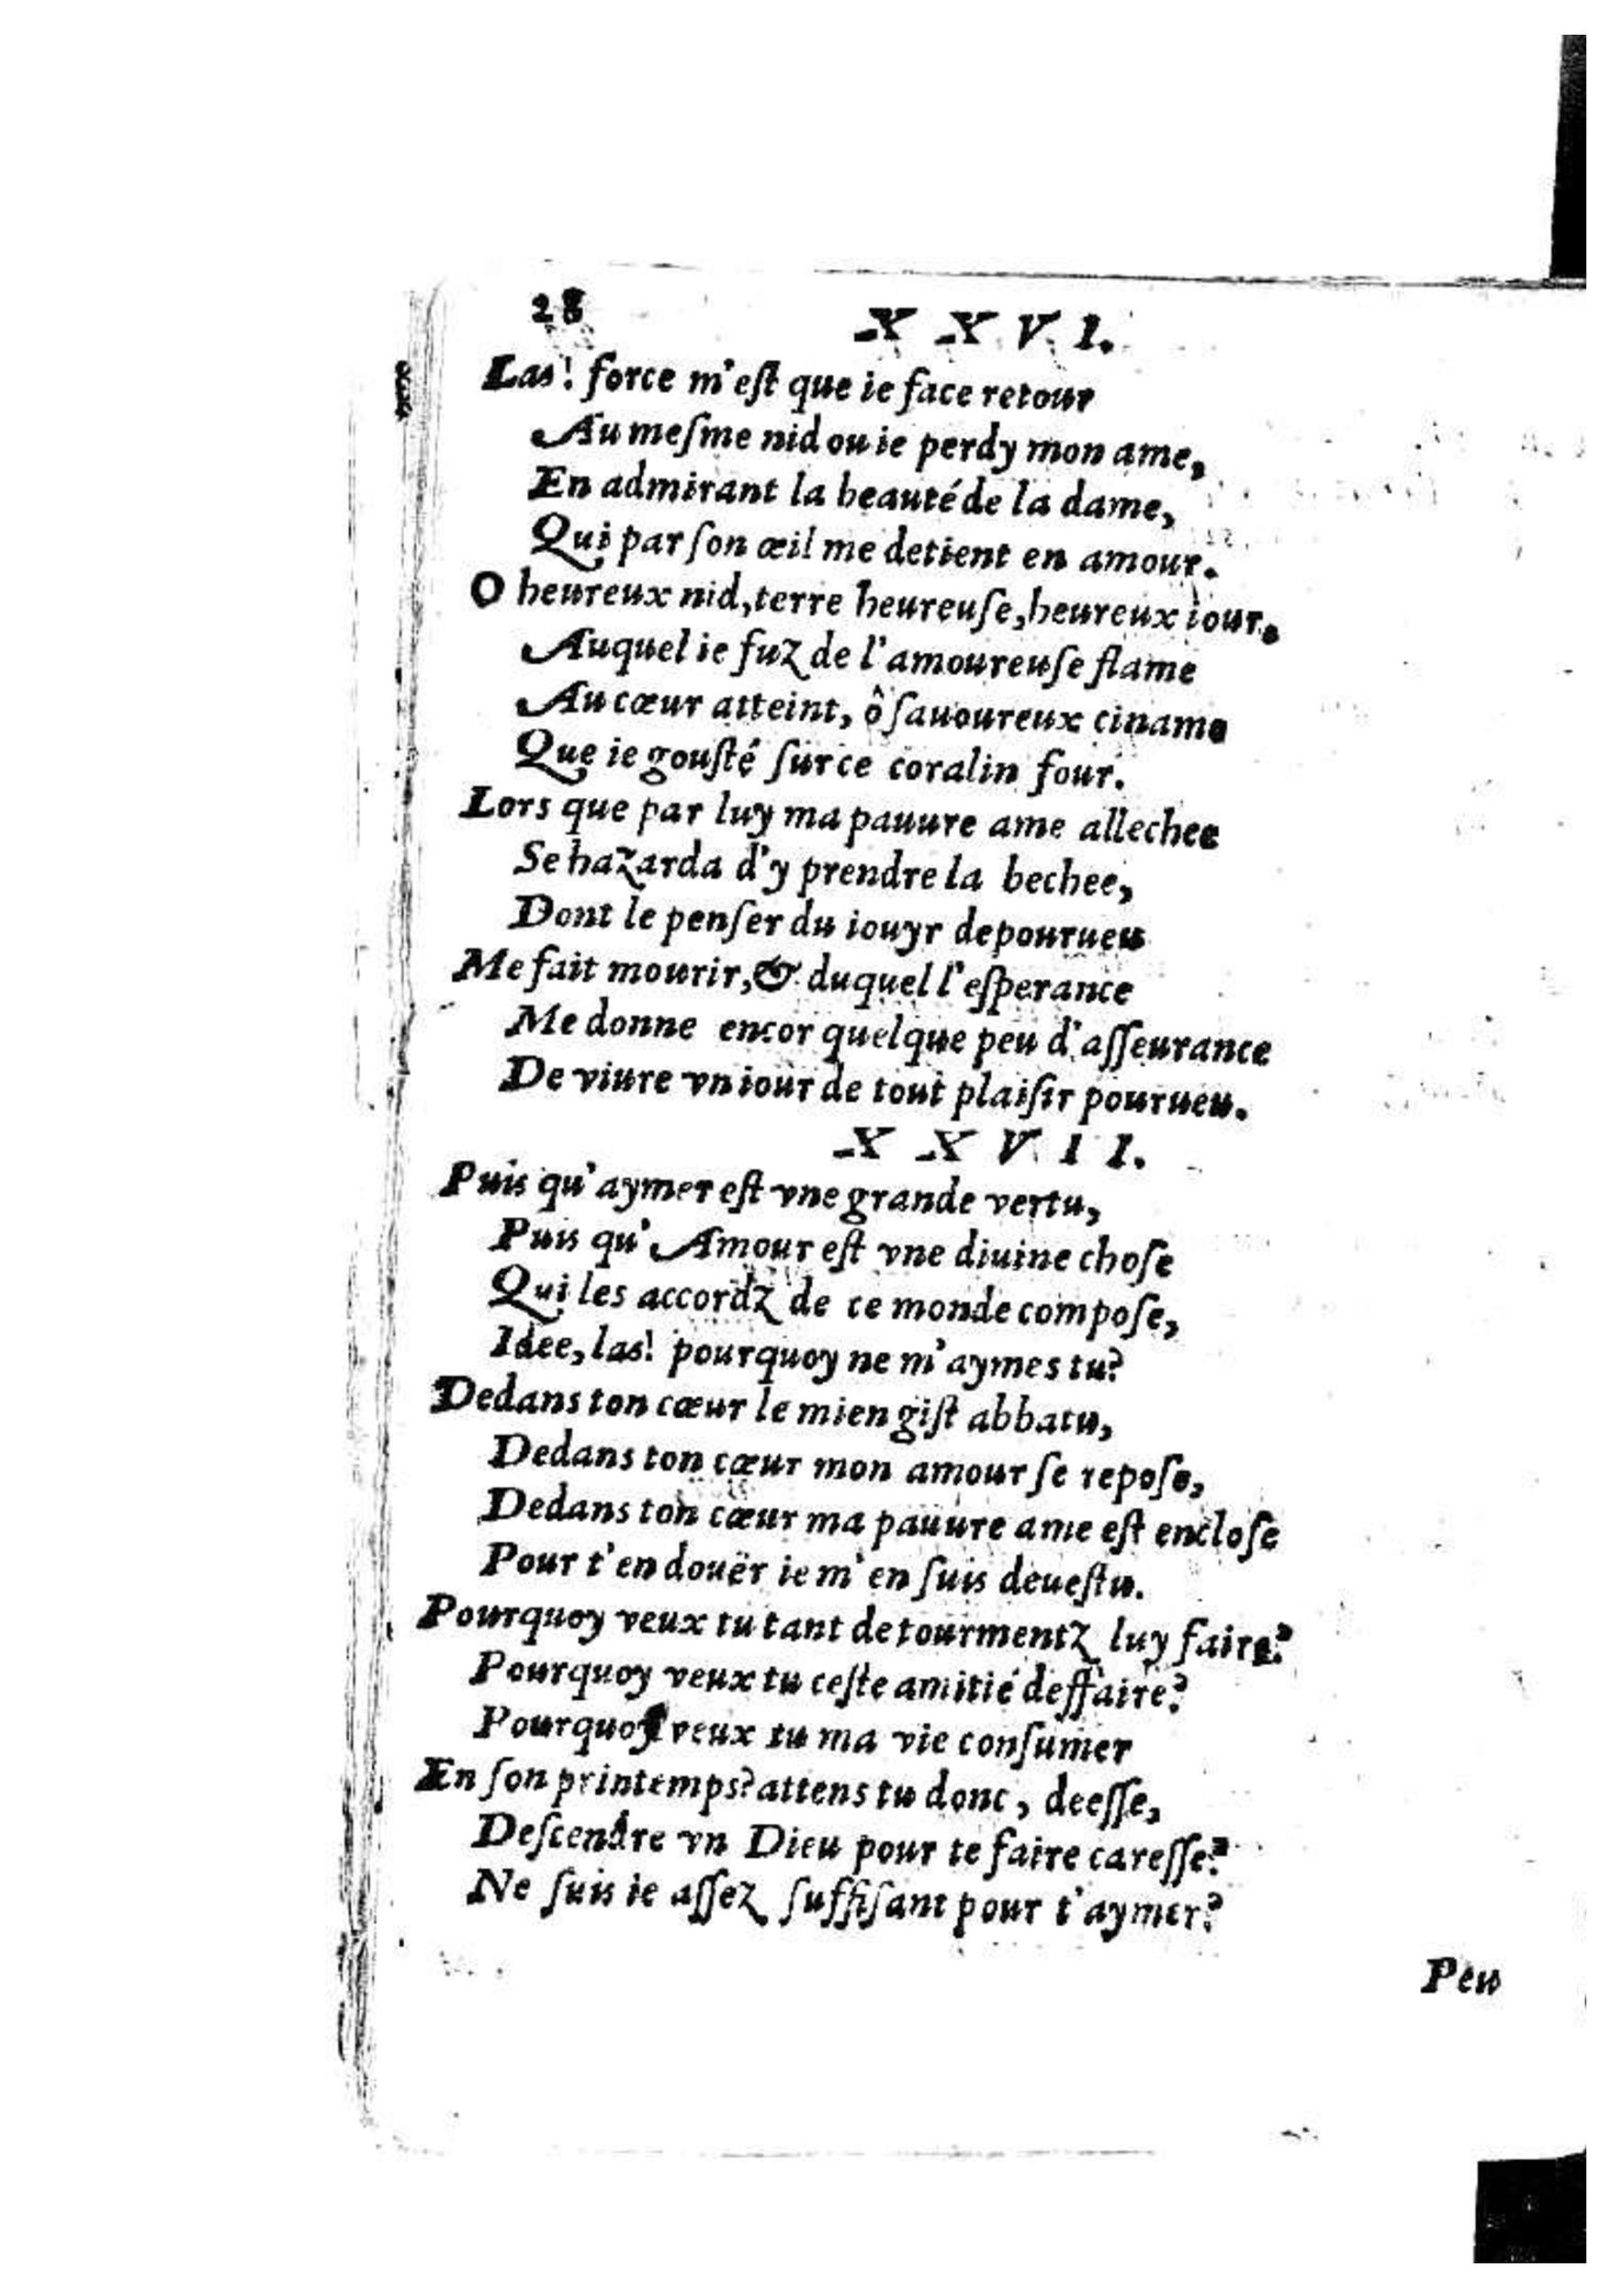 28
XXVI.
Las! force m'eſt que ie face retour
Au meſme nid ou ie perdy mon ame,
En admirant la beauté de la dame,
Qui par ſon œil me detient en amour.
O heureux nid, terre heureuſe, heureux iour.
Auquel ie fuz de l'amoureuſe flame
Au cœur atteint, ô ſauoureux ciname
Que ie gouſté ſur ce coralin four.
Lors que par luy ma pauure ame allechee
Se hazarda d'y prendre la bechee,
Dont le penſer du iouyr depourueu
Me fait mourir, & duquel l'eſperance
Me donne encor quelque peu d'aſſeurance
De viure vn iour de tout plaiſir pourueu.
XXVII.
Puis qu'aymer eſt vne grande vertu,
Puis qu'Amour eſt vne diuine choſe
Qui les accordz de ce monde compoſe,
Idee, las! pourquoy ne m'aymes tu?
Dedans ton cœur le mien giſt abbatu,
Dedans ton cœur mon amour ſe repoſe,
Dedans ton cœur ma pauure ame eſt encloſe
Pour t'en douër ie m'en ſuis deueſtu.
Pourquoy veux tu tant de tourmentz luy faire?
Pourquoy veux tu ceſte amitié deffaire?
Pourquoy veux tu ma vie conſumer
En ſon printemps? attens tu donc, deeſſe,
Deſcendre vn Dieu pour te faire careſſe?
Ne ſuis ie aſſez ſuffiſant pour t'aymer?
Peu